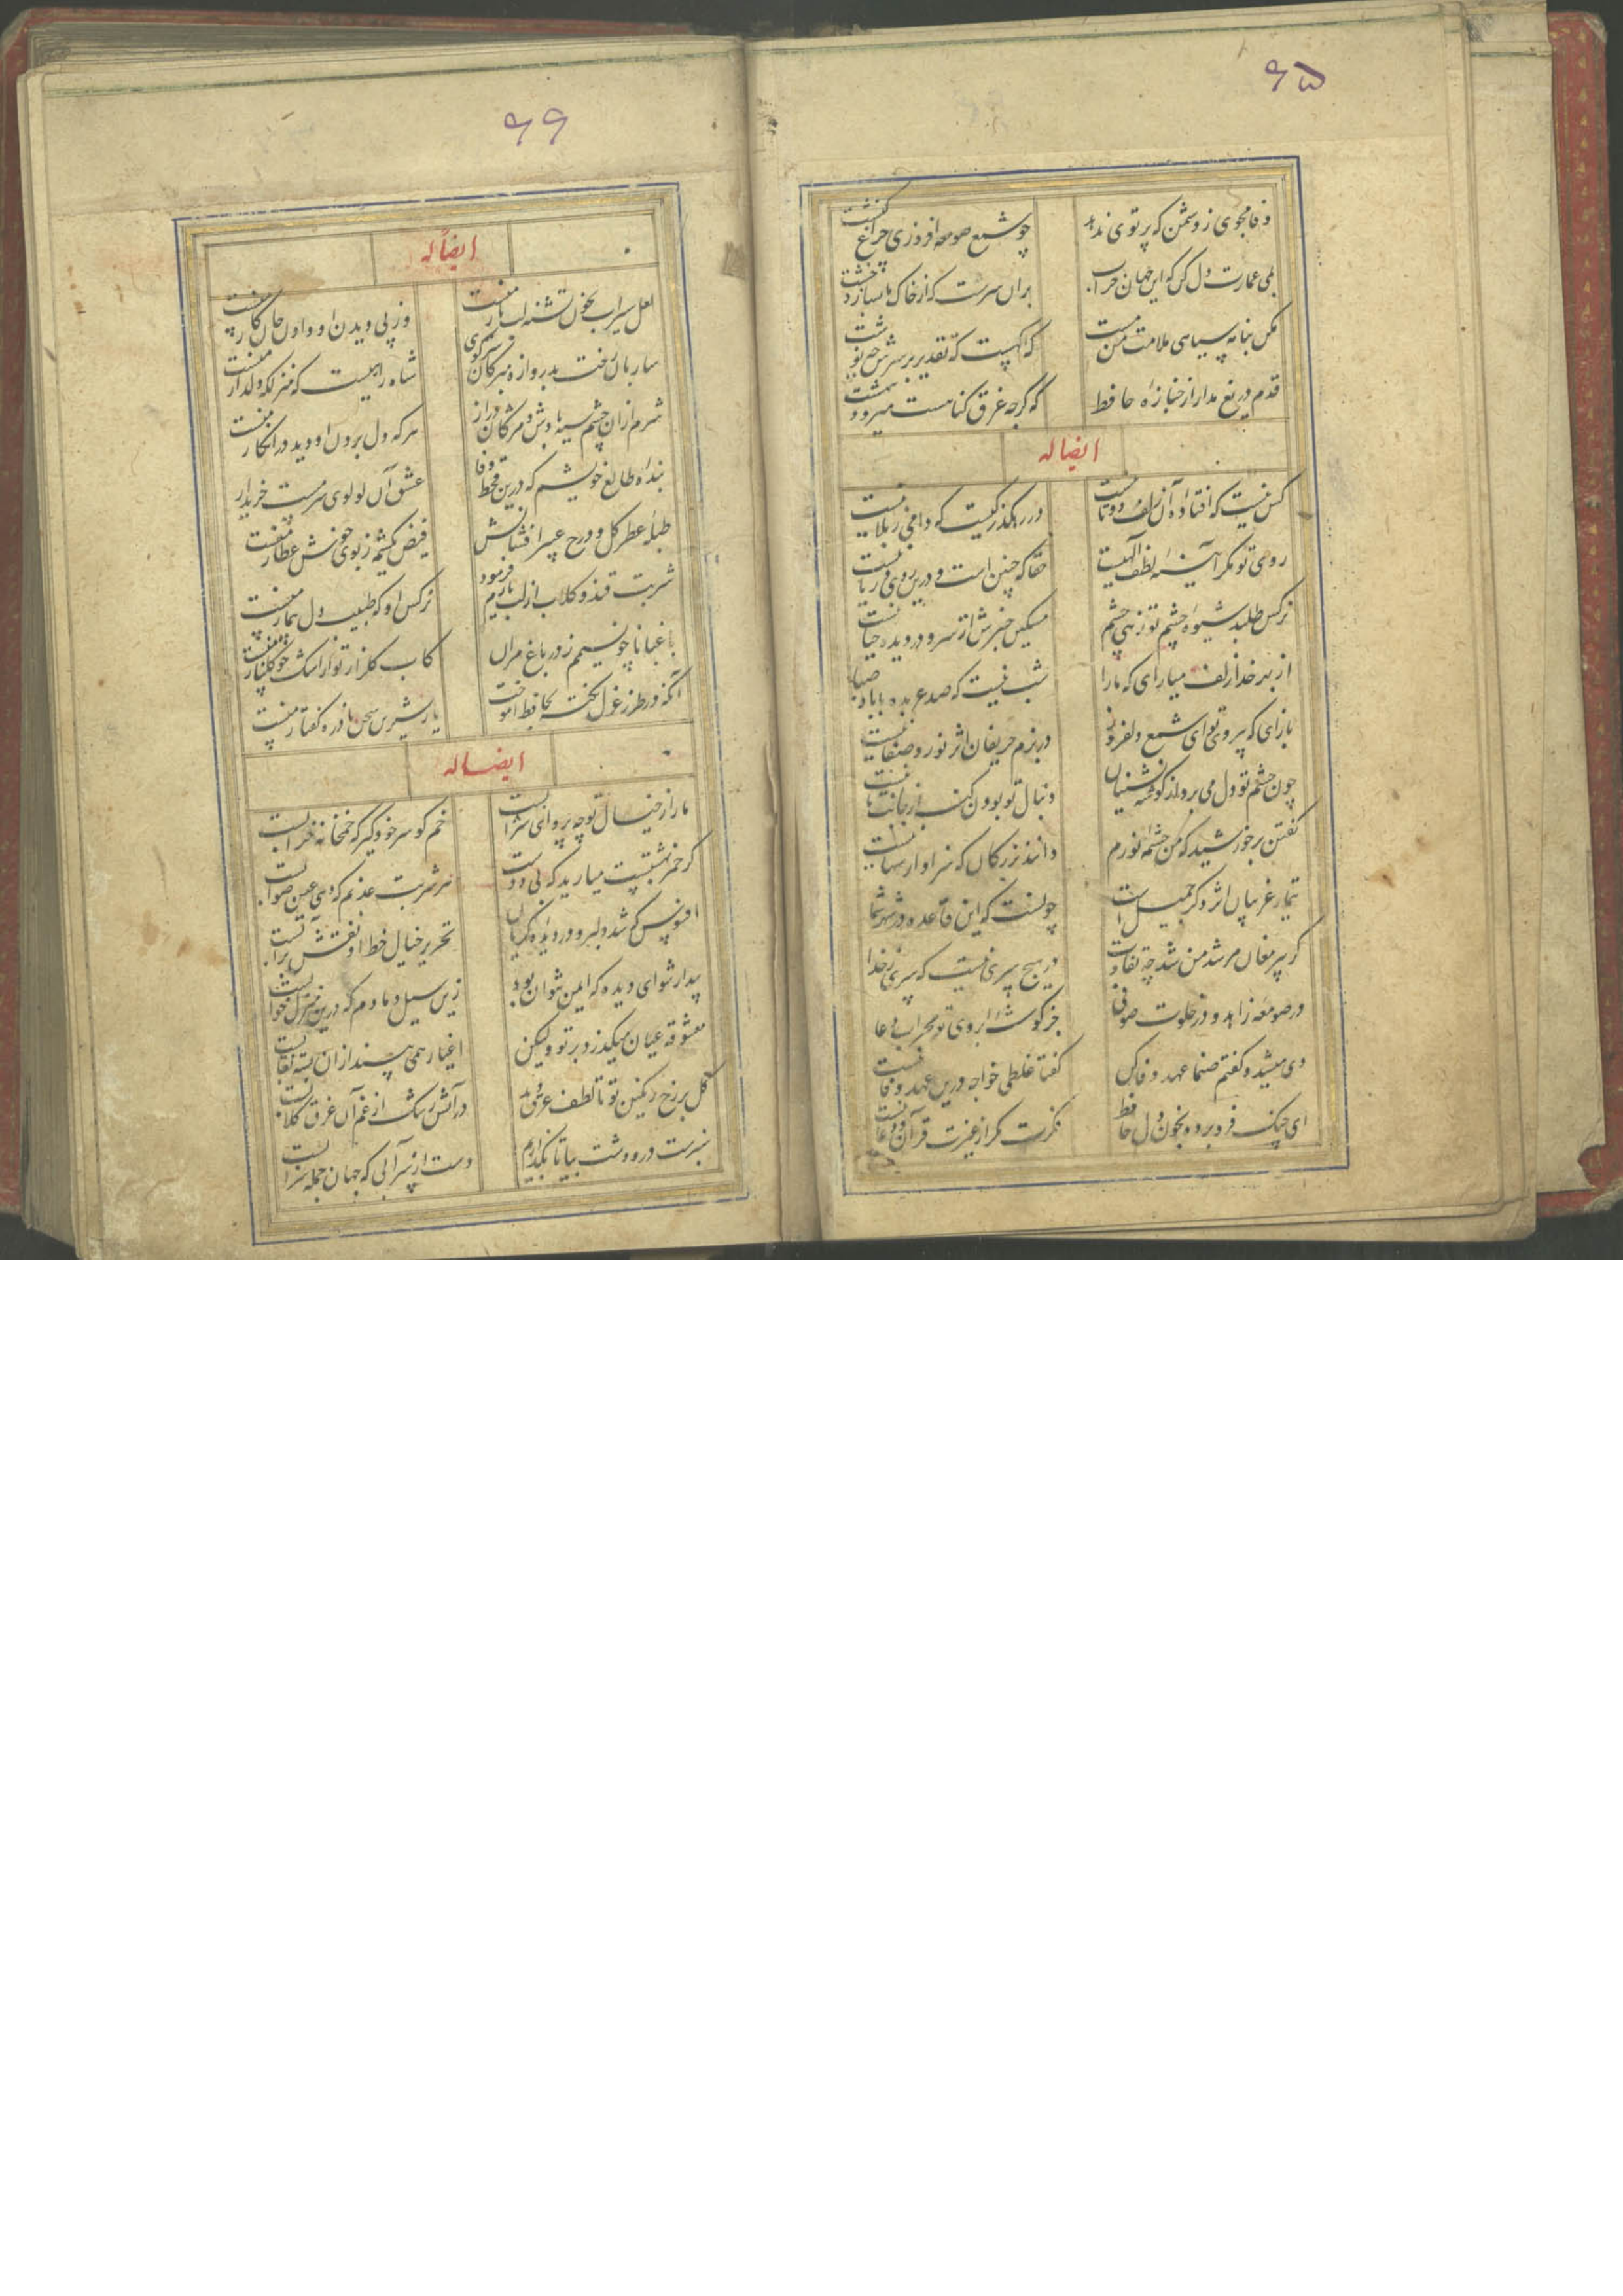 ۶۵
وفا مجوی ز دشمن که پرتوی ندهد
چو شمع صومعه افروزی از چراغ کنشت
بمی عمارت دل کن که این جهان خراب
بران سرست که از خاک ما بسازد خشت
مکن بنامه سیاهی ملامت من مست
که آگهست که تقدیر بر سرش چه نوشت
قدم دریغ مدار از جنازه حافظ
که گرچه غرق گناهست میرود ببهشت
ایضا له
کس نیست که افتاده آن زلف دوتا نیست
در رهگذر کیست که دامی ز بلا نیست
روی تو مگر آینه لطف الهیست
حقا که چنین است و درین روی و ریا نیست
نرکس طلبد شیوه چشم تو زهی چشم
مسکین خبرش از سر و در دیده حیا نیست
از بهر خدا زلف میارای که ما را
شب نیست که صد عربده با باد صبا نیست
بازای که بی روی تو ای شمع دلفروز
در بزم حریفان اثر نور و صفا نیست
چون چشم تو دل می برد از گوشه نشینان
دنبال تو بودن گنه از جانب ما نیست
گفتن بر خورشید که من چشمه نورم
دانند بزرگان که سزاوار سها نیست
تیمار غریبان اثر ذکر جمیل است
چونست که این قاعده در شهر شما نیست
گر پیر مغان مرشد من شد چه تفاوت
در هیچ سری نیست که سری ز خدا نیست
در صومعه زاهد و در خلوت صوفی
جز گوشه ابروی تو محراب دعا نیست
دی میشد و گفتم صنما عهد وفا کن
گفتا غلطی خواجه درین عهد وفا نیست
ای چنک فرو برده بخون دل حافظ
فکرت مگر از غیرت قرآن و دعا نیست
۶۶
ایضا له
لعل سیراب بخون تشنه لب یار منست
وز پی دیدن او دادن جان کار منست
ساربان رخت بدروازه مبر کان سر کوی
شاه راهیست که منزلگه دلدار منست
شرم از آن چشم سیه بادش و مژگان دراز
هر که دل بردن او دید و در انکار منست
بنده طالع خویشم که درین قحط وفا
عشق آن لولوی سرمست خریدار
طبله عطر گل و درج عبیر افشانش
فیض یکشمه ز بوی خوش عطار منست
شربت قند و گلاب از لب یارم فرمود
نرکس او که طبیب دل بیمار منست
باغبانا چو نسیمم ز در باغ مران
کاب گلزار تو از اشک چو گلنار منست
آنکه در طرز غزل نکته بحافظ آموخت
یار شیرین سخن نادره گفتار منست
ایضا له
ما را ز خیال تو چه پروای شرابست
خم گو سر خود گیر که خمخانه خرابست
گر خمر بهشتیست مبارید که بی دوست
هر شربت عذبم که دهی عین عذابست
افسوس که شد دلبر و در دیده گریان
تحریر خیال خط او نقش بر آبست
بیدار شو ای دیده که ایمن نتوان بود
زین سیل دمادم که درین منزل خوابست
معشوقه عیان میگذرد بر تو ولیکن
اغیار همی بیند از آن بسته نقابست
گل بر رخ رنگین تو تا لطف عرق دید
در آتش رشک از غم آن غرق گلابست
سبزست در و دشت بیا تا نگذاریم
دست از سر آبی که جهان جمله سرابست